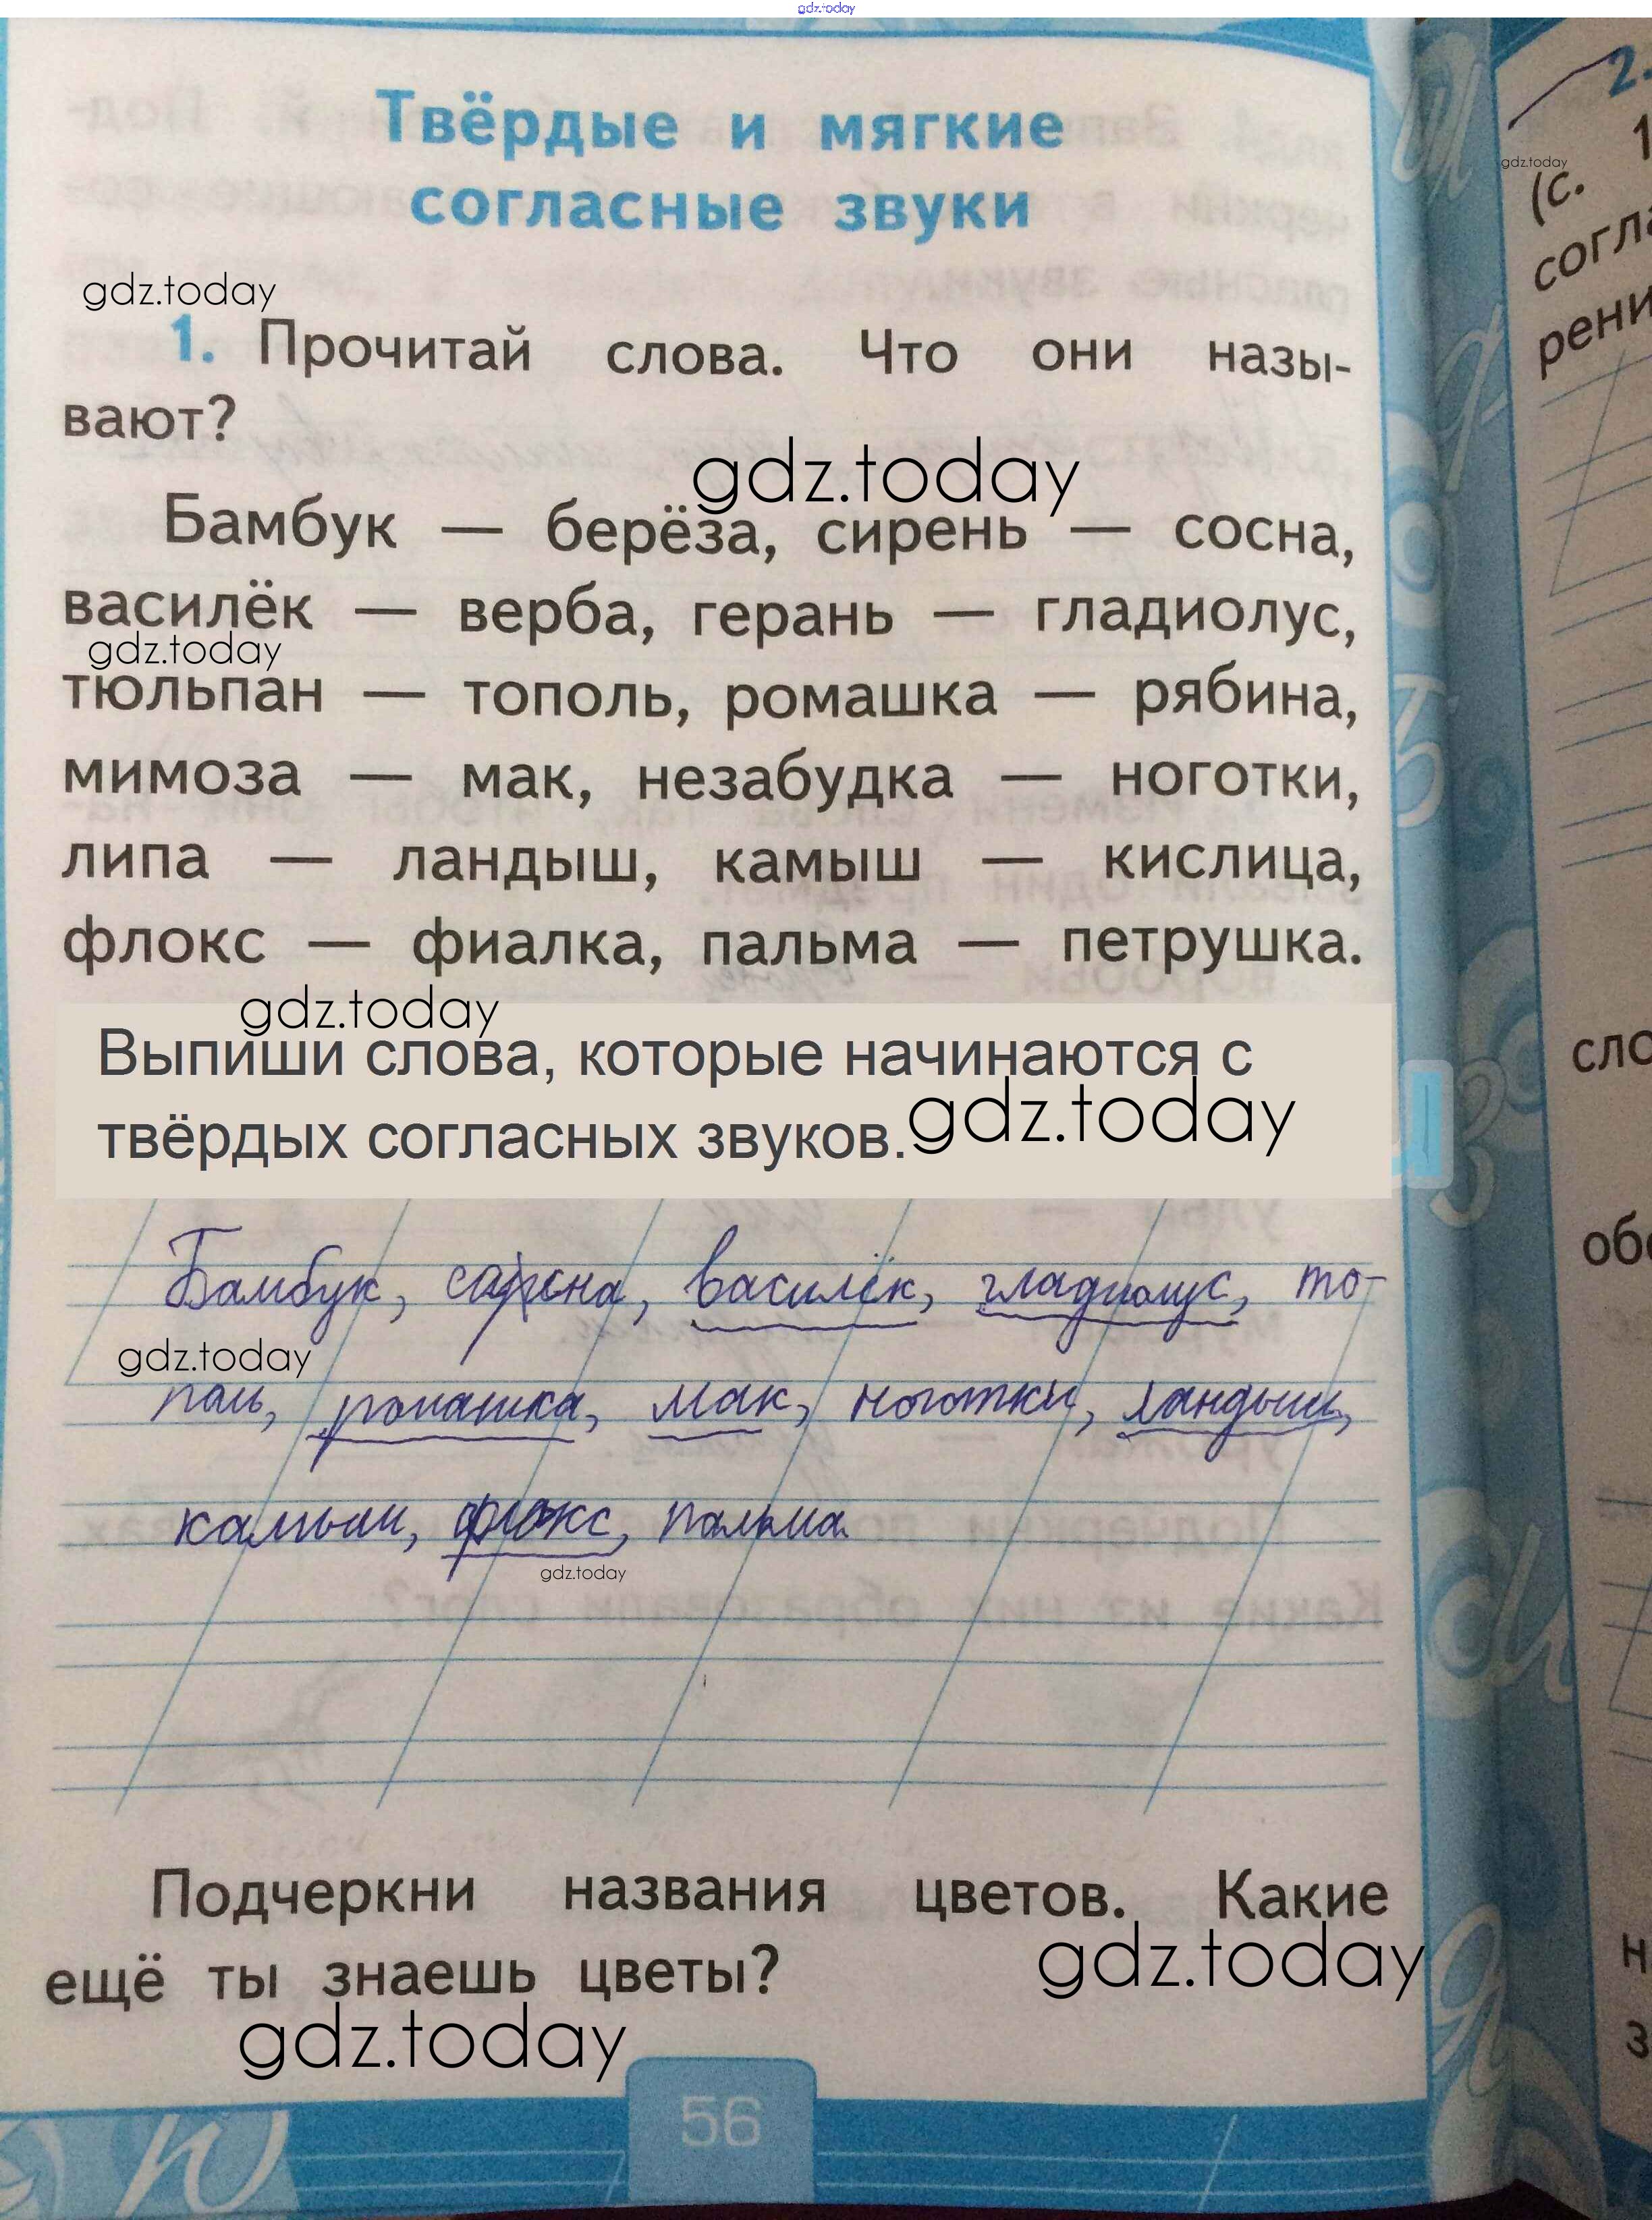 gdz.today
Твёрдые и мягкие
согласные звуки
gdz.today
1. Прочитай слова. Что они назы-
вают?
gdz.today
Бамбук — берёза, сирень — сосна,
василёк — верба, герань — гладиолус,
gdz.today
тюльпан — тополь, ромашка — рябина,
мимоза — мак, незабудка — ноготки,
липа — ландыш, камыш — кислица,
флокс — фиалка, пальма — петрушка.
gdz.today
Выпиши слова, которые начинаются с
твёрдых согласных звуков.
gdz.today
Бамбук, сосна, василёк, гладиолус, то-
gdz.today
поль, ромашка, мак, ноготки, ландыш,
камыш, флокс, пальма.
gdz.today
Подчеркни названия цветов. Какие
ещё ты знаешь цветы?
gdz.today
gdz.today
56
2.
1
gdz.today
(с.
согла
рени
сло
обо
н
з